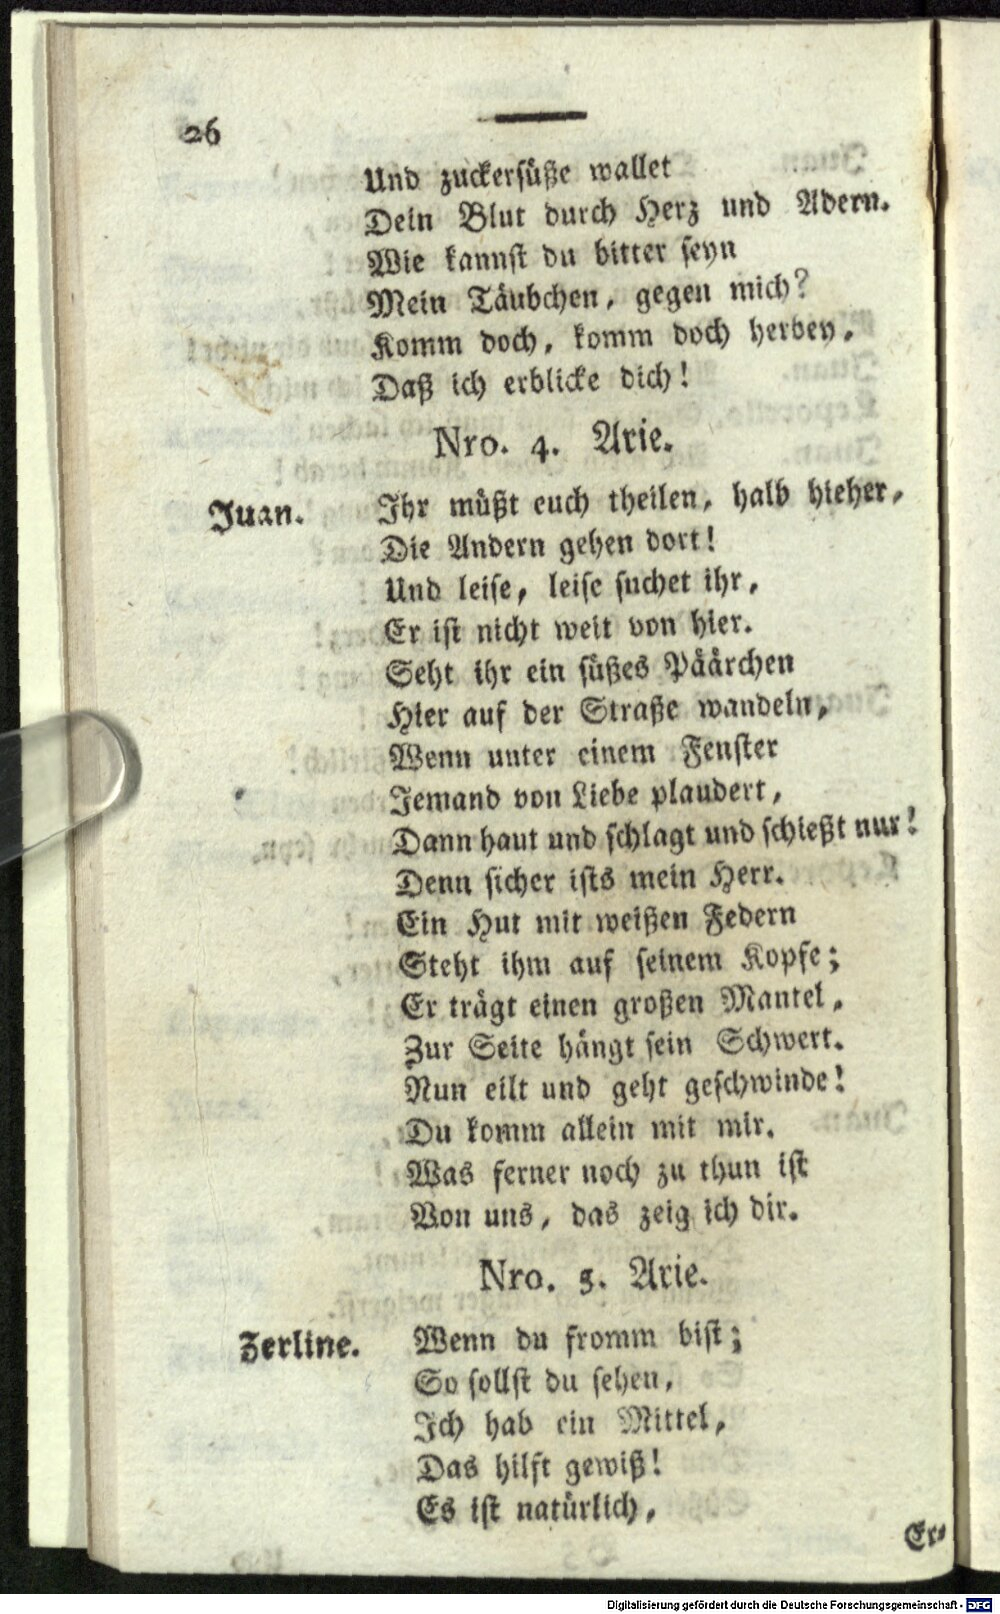 26
Und zuckersüße wallet
Dein Blut durch Herz und Adern.
Wie kannst du bitter seyn
Mein Täubchen, gegen mich?
Komm doch, komm doch herbey,
Daß ich erblicke dich!
Nro. 4. Arie.
Juan. Ihr müßt euch theilen, halb hieher,
Die Andern gehen dort!
Und leise, leise suchet ihr,
Er ist nicht weit von hier.
Seht ihr ein süßes Päärchen
Hier auf der Straße wandeln,
Wenn unter einem Fenster
Jemand von Liebe plaudert,
Dann haut und schlagt und schießt nur!
Denn sicher ists mein Herr.
Ein Hut mit weißen Federn
Steht ihm auf seinem Kopfe;
Er trägt einen großen Mantel,
Zur Seite hängt sein Schwert.
Nun eilt und geht geschwinde!
Du komm allein mit mir.
Was ferner noch zu thun ist
Von uns, das zeig ich dir.
Nro. 5. Arie.
Zerline. Wenn du fromm bist;
So sollst du sehen,
Ich hab ein Mittel,
Das hilft gewiß!
Es ist natürlich,
Er-
Digitalisierung gefördert durch die Deutsche Forschungsgemeinschaft - DFG